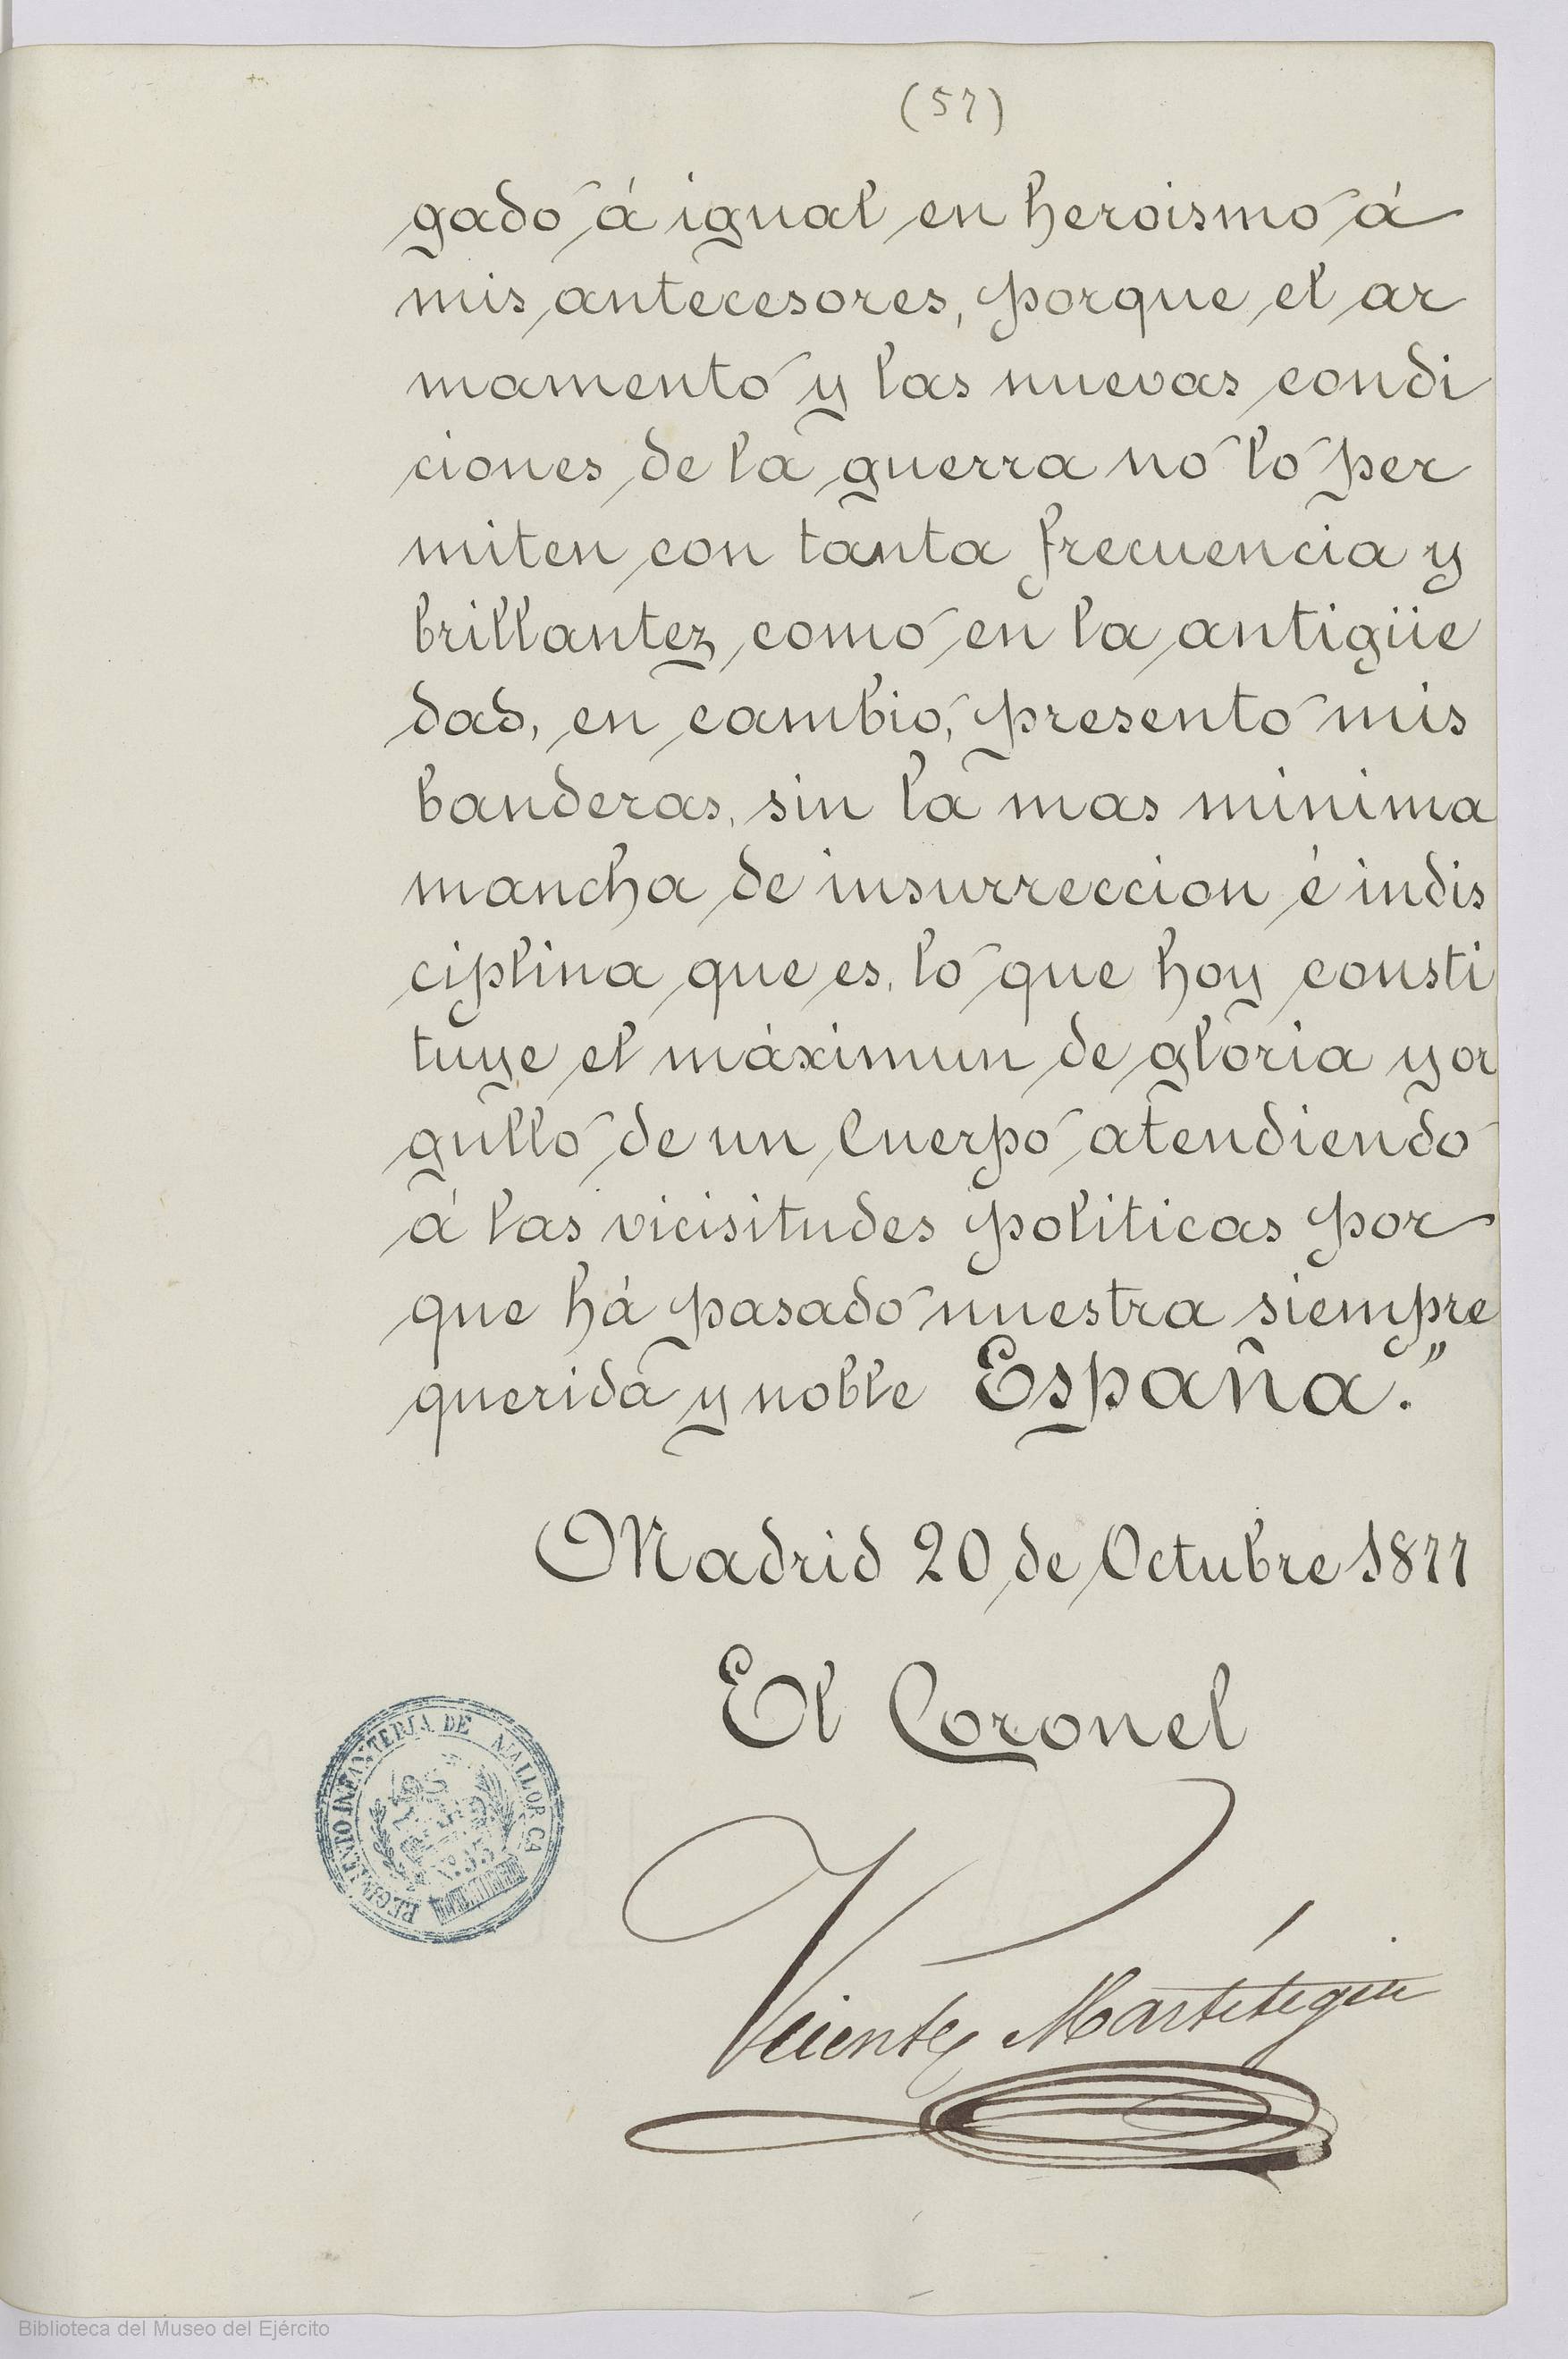 (57)
gado á igual en heroismo á
mis antecesores, porque el ar
mamento y las nuevas condi
ciones de la guerra no lo per
miten con tanta frecuencia y
brillantez como en la antigüe
dad, en cambio, presento mis
banderas, sin la mas minima
mancha de insurreccion é indis
ciplina que es, lo que hoy consti
tuye el máximun de gloria y or
gullo de un Cuerpo atendiendo
á las vicisitudes politicas por
que há pasado nuestra siempre
querida y noble España."
Madrid 20 de Octubre 1877
El Coronel
REGIMIENTO INFANTERIA DE MALLORCA
Vicente Martitegui
Biblioteca del Museo del Ejército